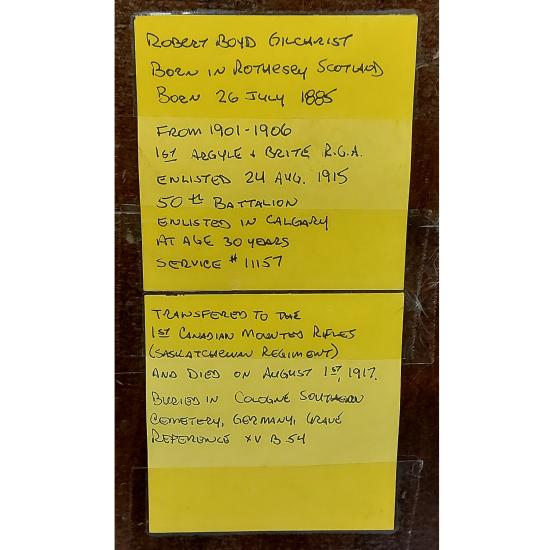 ROBERT BOYD GILCHRIST
BORN IN ROTHESEY SCOTLAND
BORN 26 JULY 1885
FROM 1901-1906
1ST ARGYLE + BRITE R.G.A.
ENLISTED 24 AUG. 1915
50TH BATTALION
ENLISTED IN CALGARY
AT AGE 30 YEARS
SERVICE # 11157
TRANSFERED TO THE
1ST CANADIAN MOUNTED RIFLES
(SASKATCHEWAN REGIMENT)
AND DIED ON AUGUST 1ST, 1917.
BURIED IN COLOGNE SOUTHERN
CEMETERY, GERMANY, GRAVE
REFERENCE XV B 54